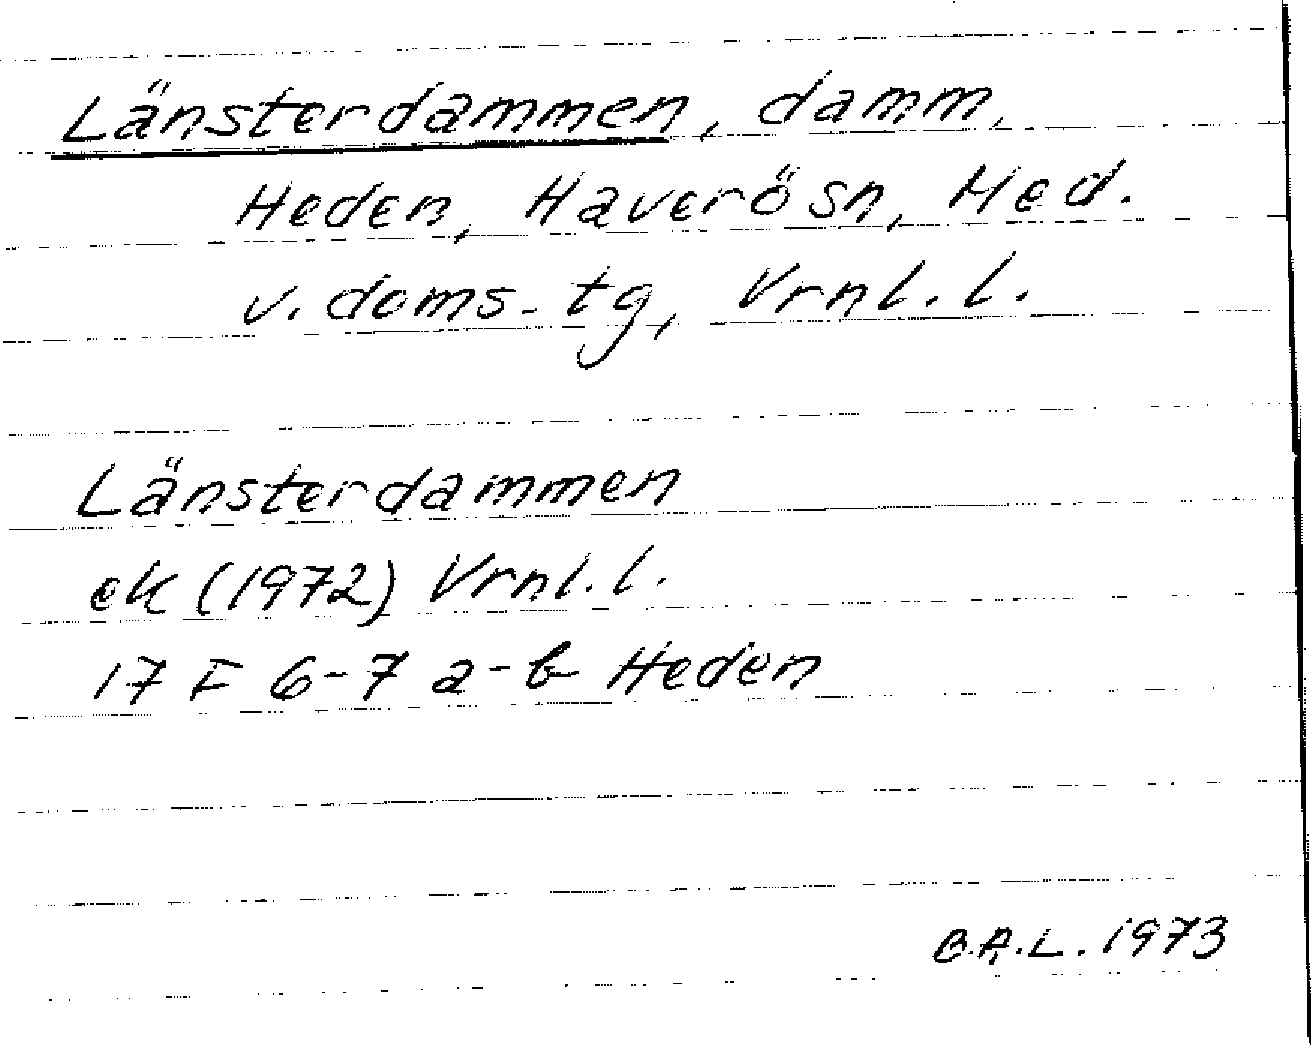 Länsterdammen, damm,
Heden, Haverö sn, Med.
v. doms. tg, Vrnl. l.
Länsterdammen
ek (1972) Vrnl. l.
17 F 6-7 a-b Heden
B.A.L. 1973